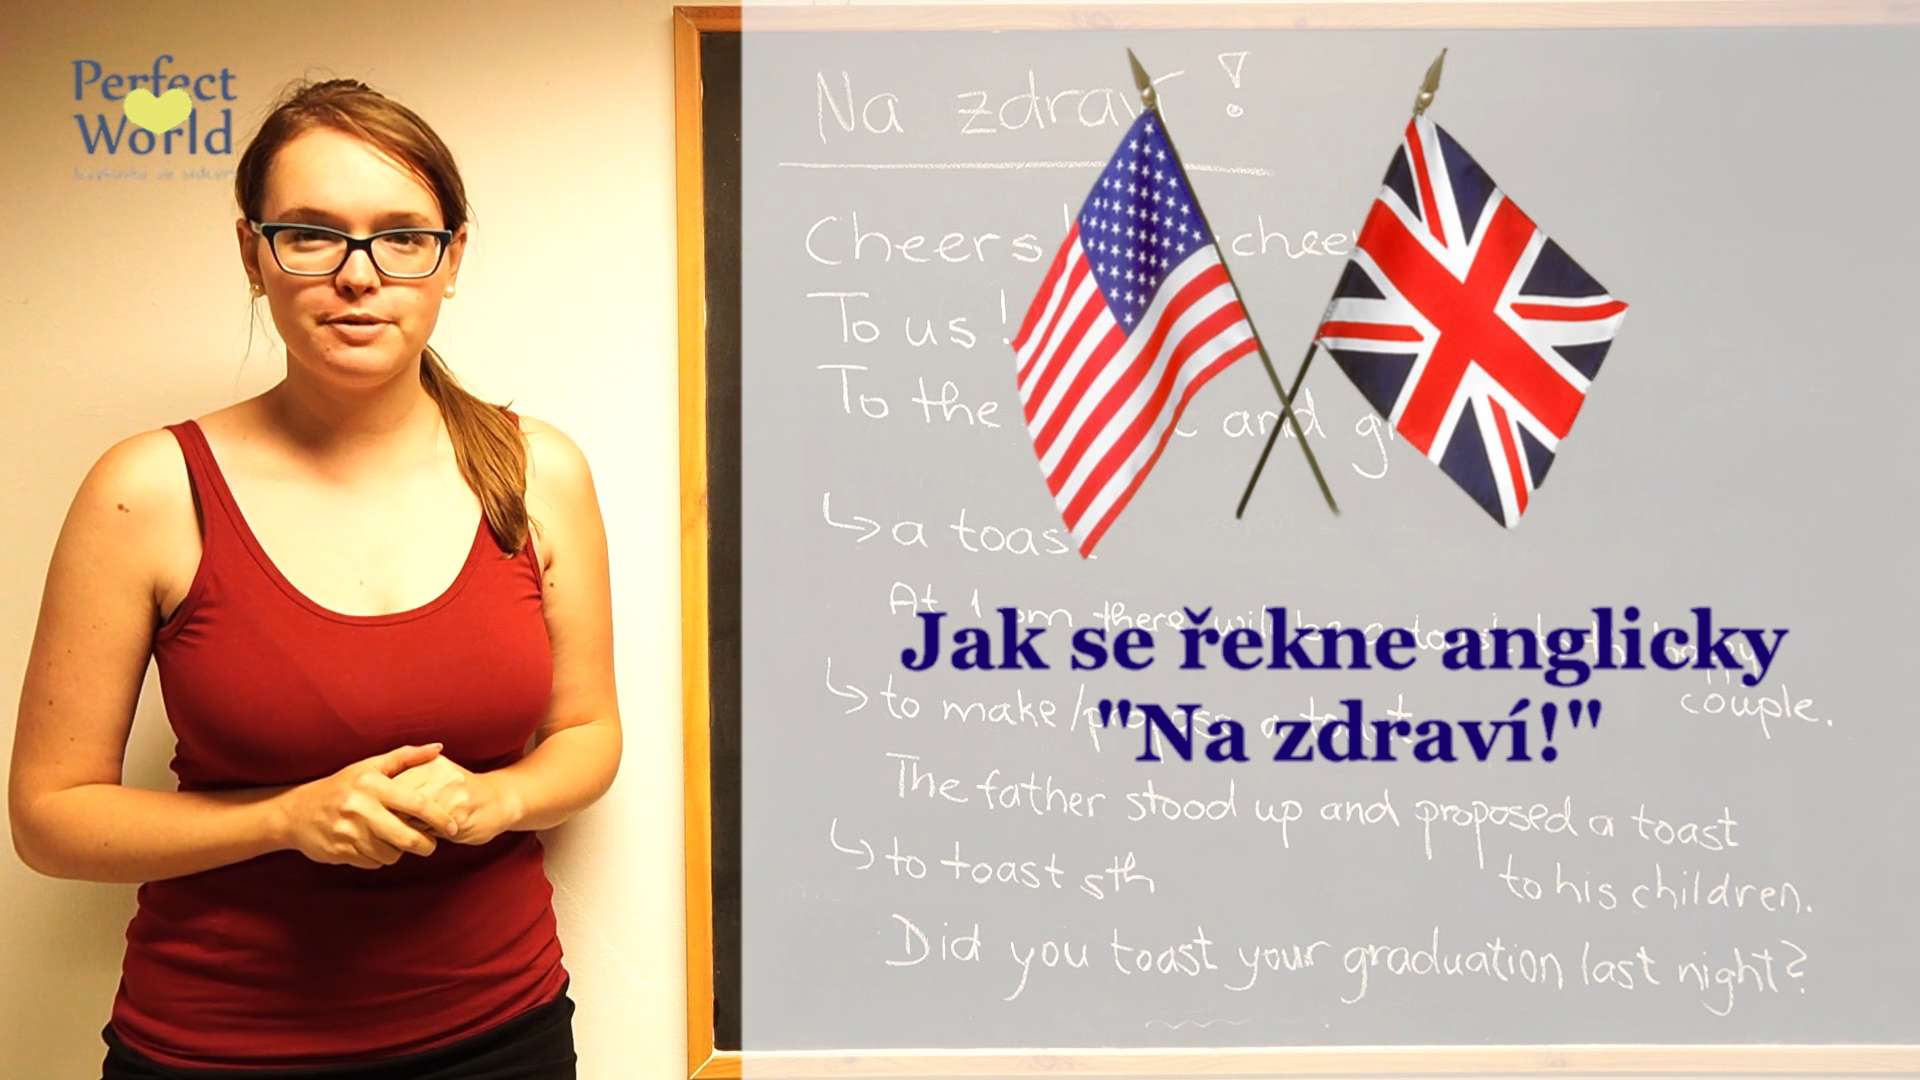 Perfect
World
Na zdraví!
Cheers
To us!
To the and
↳ a toast
At 1 pm there will be a toast to the happy
couple.
↳ to make/propose a toast
The father stood up and proposed a toast
to his children.
↳ to toast sth
Did you toast your graduation last night?
Jak se řekne anglicky
"Na zdraví!"